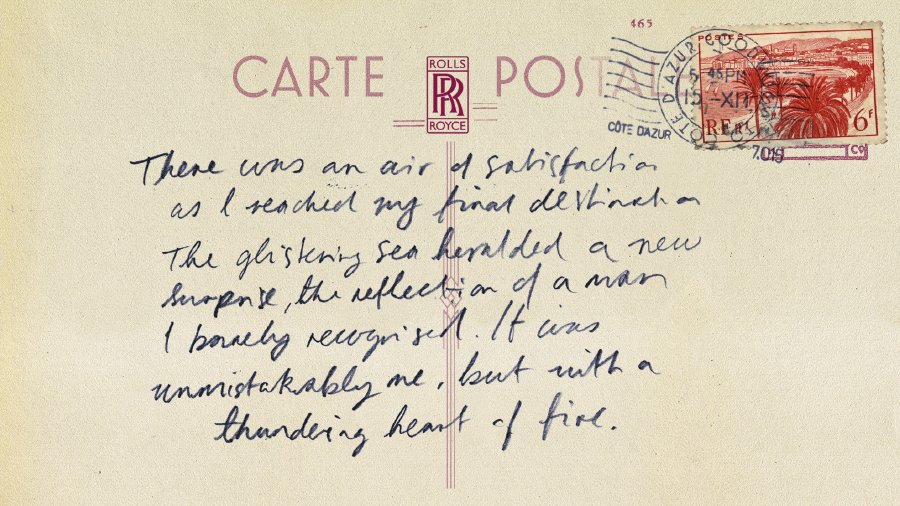 465
CARTE POSTALE
ROLLS
RR
ROYCE
POSTES
CÔTE D'AZUR
15 -XII
6F
CÔTE D'AZUR
Co
There was an air of satisfaction
as I reached my final destination
The glistening sea heralded a new
surprise, the reflection of a man
I barely recognised. It was
unmistakably me, but with a
thundering heart of fire.